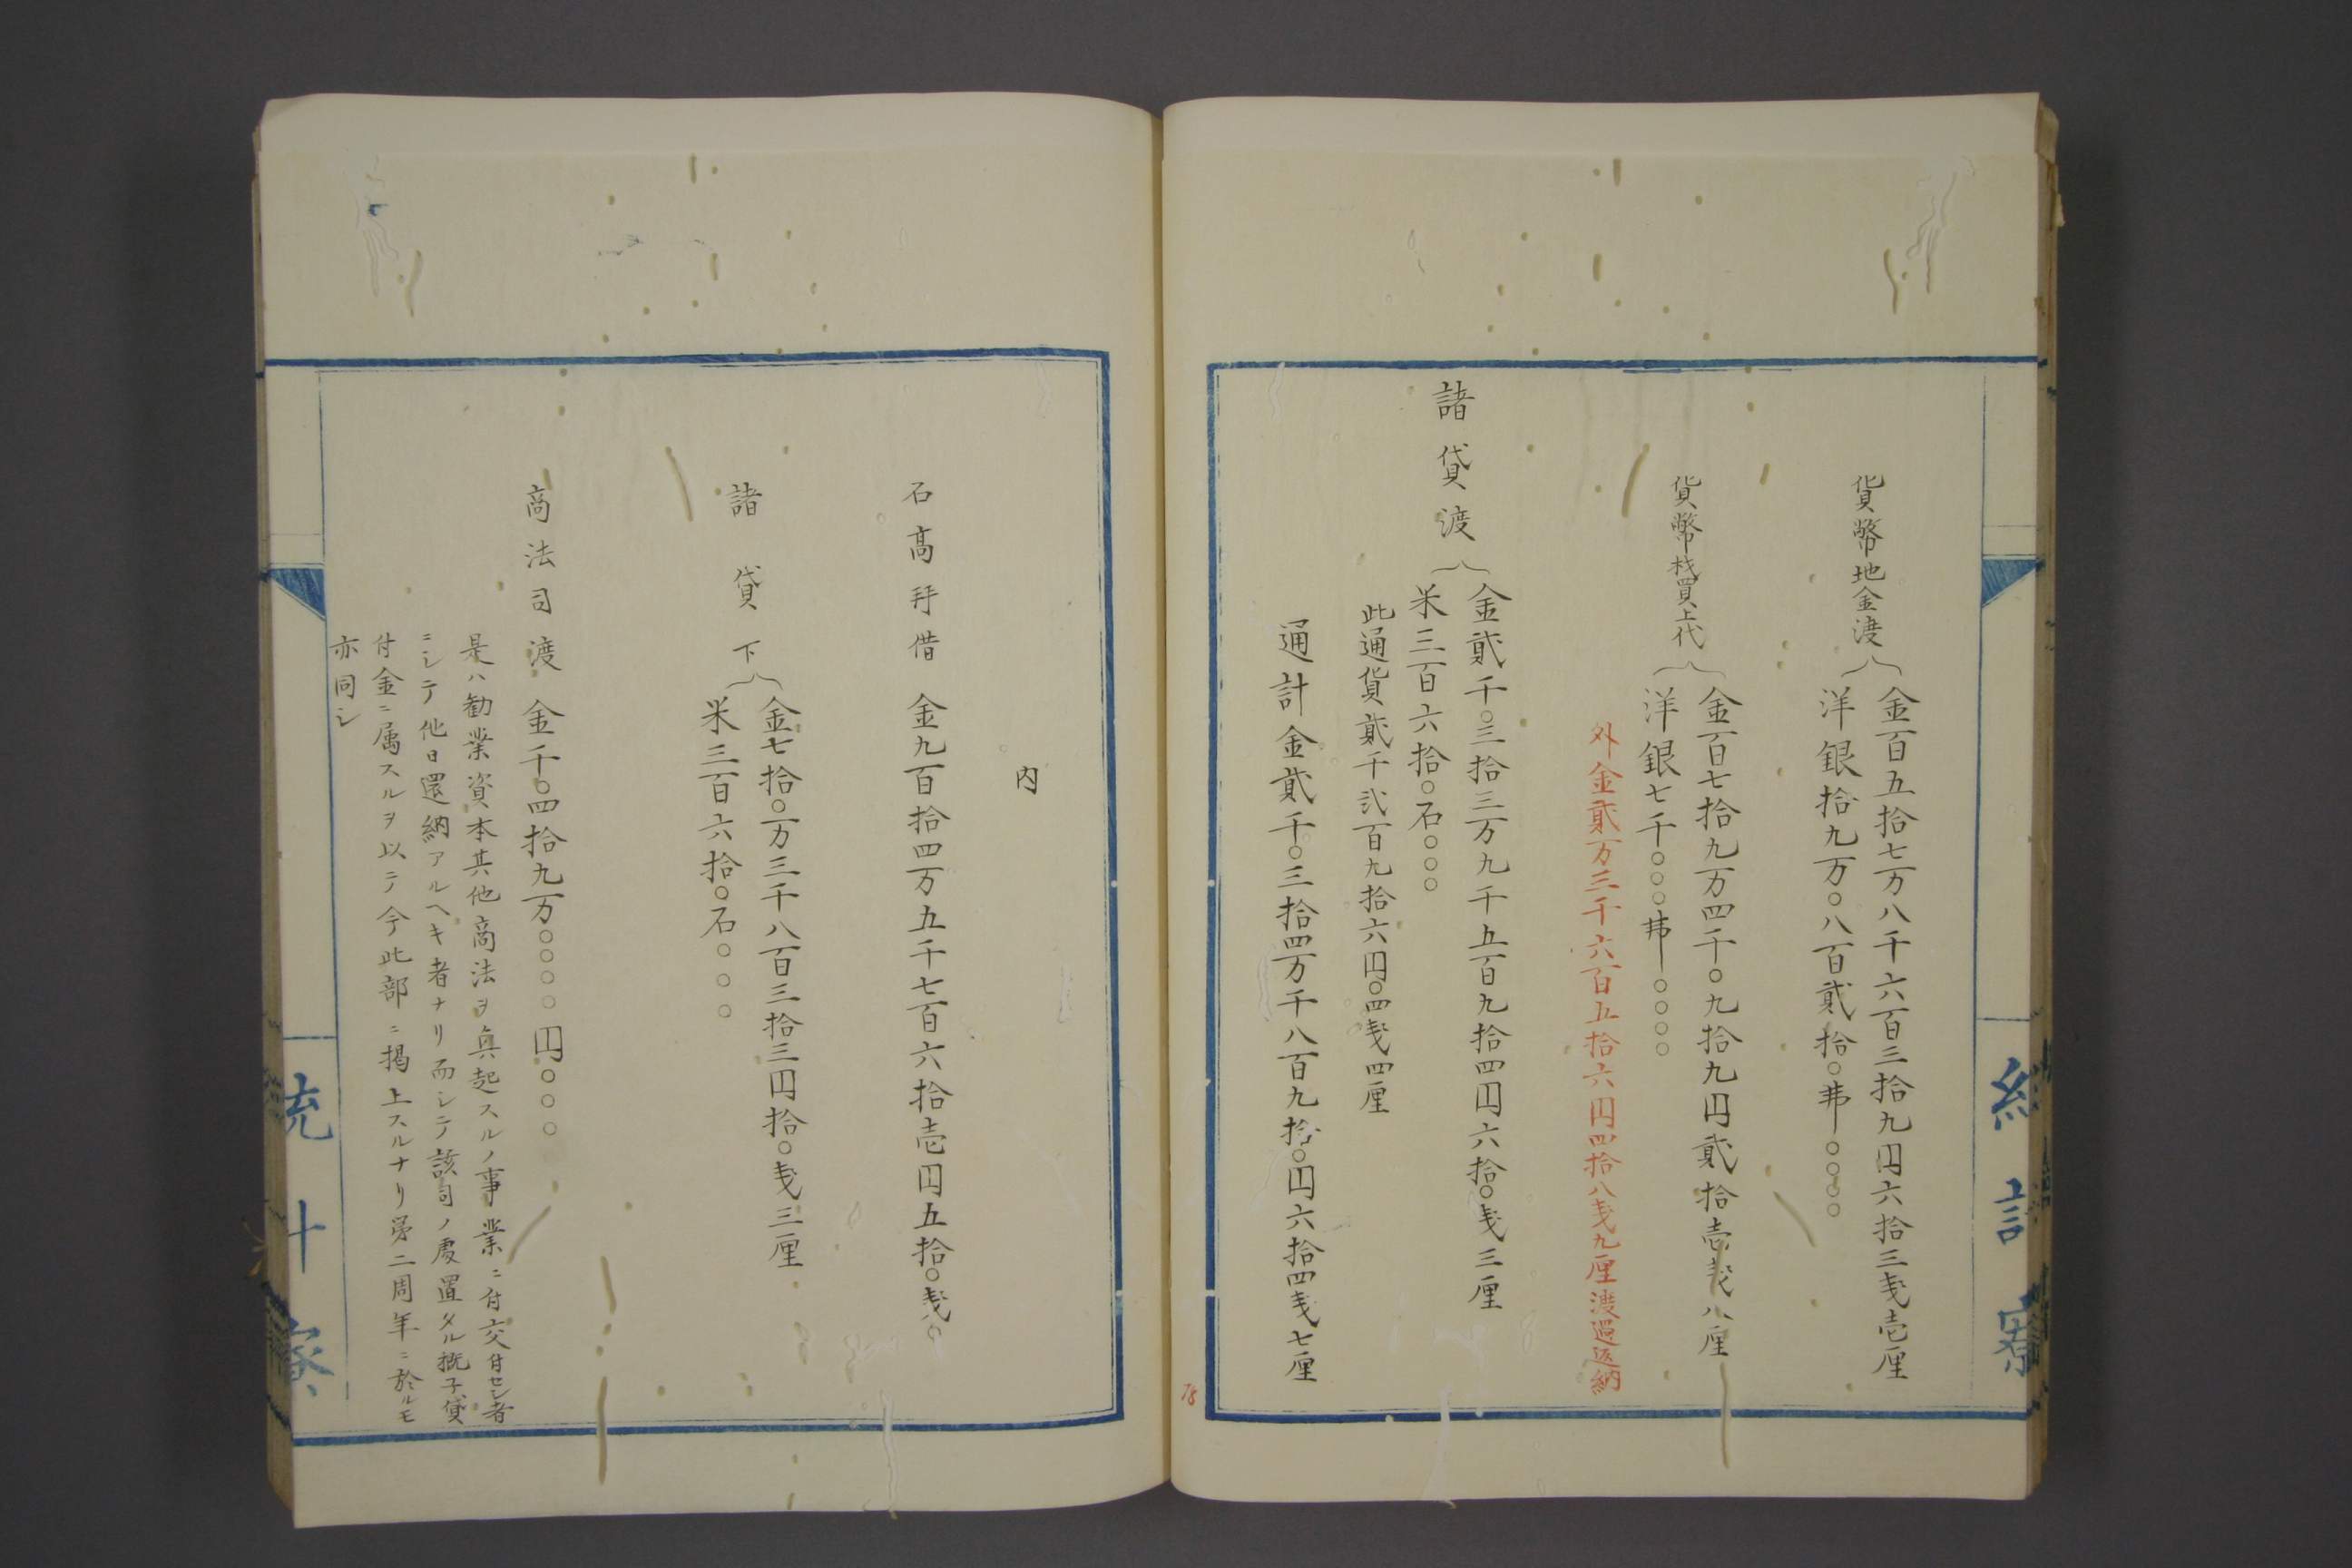 貨幣地金渡
金百五拾七万八千六百三拾九円六拾三戔壱厘
洋銀拾九万〇八百貳拾〇弗〇〇〇〇
貨幣材買上代
金百七拾九万四千〇九拾九円貳拾壱戔八厘
洋銀七千〇〇〇弗〇〇〇〇
外金貳万三千六百五拾六円四拾八戔九厘渡過返納
諸貸渡
金貳千〇三拾三万九千五百九拾四円六拾〇戔三厘
米三百六拾〇石〇〇〇
此通貨貳千弍百九拾六円〇四戔四厘
通計金貳千〇三拾四万千八百九拾〇円六拾四戔七厘
78
内
石高拝借 金九百拾四万五千七百六拾壱円五拾〇戔〇
諸貸下
金七拾〇万三千八百三拾三円拾〇戔三厘
米三百六拾〇石〇〇〇
商法司渡 金千〇四拾九万〇〇〇〇円〇〇〇
是ハ勧業資本其他商法ヲ眞起スルノ事業ニ付交付セシ者
ニシテ他日還納アルヘキ者ナリ而シテ該司ノ處置タル概子貸
付金ニ属スルヲ以テ今此部ニ掲上スルナリ第二周年ニ於ルモ
亦同シ
統計寮